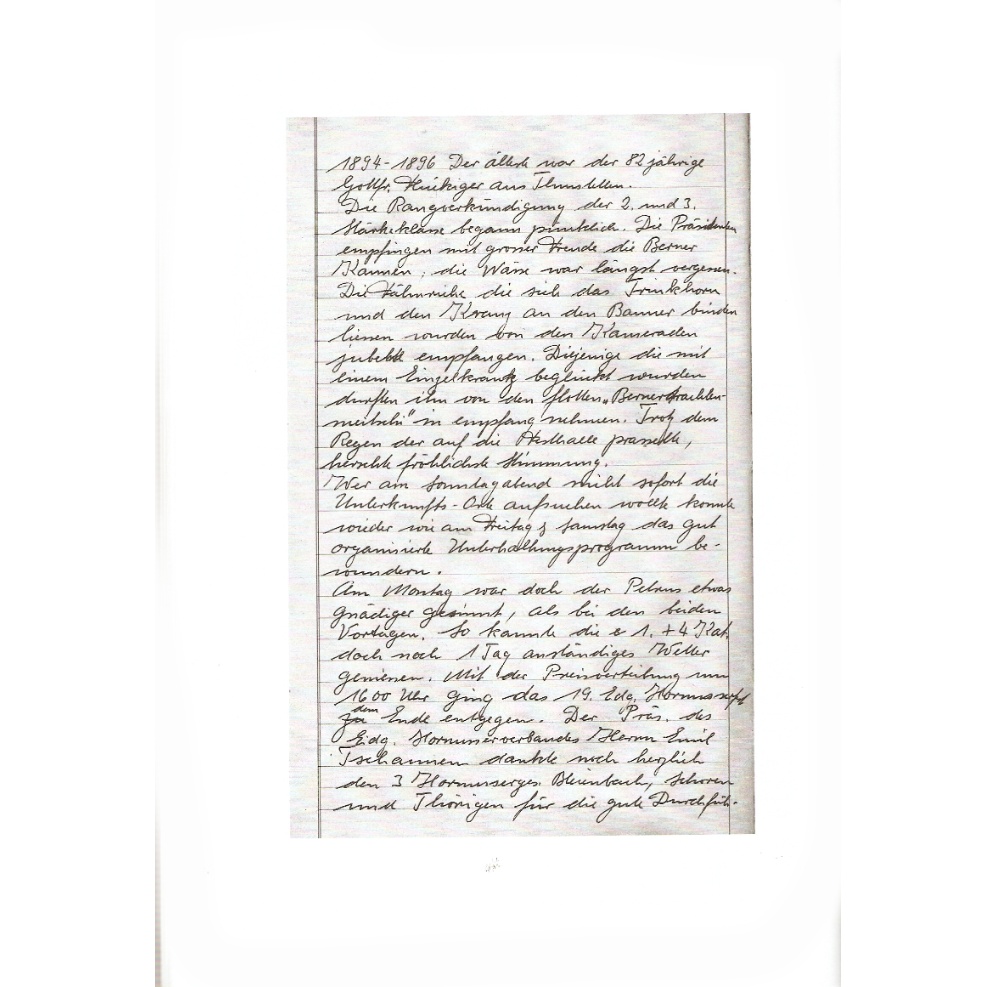 1894-1896 Der älteste war der 82 jährige
Gottfr. Flückiger aus Thunstetten.
Die Rangverkündigung der 2. und 3.
Stärkeklasse begann pünktlich. Die Präsidenten
empfingen mit grosser Freude die Berner
Kannen; die Wärme war längst vergessen.
Die Fähnriche die sich das Trinkhorn
und den Kranz an den Banner binden
liessen wurden von den Kameraden
jubelt empfangen. Diejenige die mit
einem Einzelkranz beglückt wurden
durften ihn von den flotten „Bernertrachten-
meitschi" in empfang nehmen. Trotz dem
Regen der auf die Festhalle prasselte,
herschte fröhlichste Stimmung.
Wer am Sonntagabend nicht sofort die
Unterkunfts-Orte aufsuchen wollte konnte
wieder wie am Freitag & Samstag das gut
organisierte Unterhaltungsprogramm be-
wundern.
Am Montag war doch der Petrus etwas
gnädiger gesinnt, als bei den beiden
Vortagen. So konnte die 1. + 4 Kat.
doch noch 1 Tag anständiges Wetter
geniessen. Mit der Preisverteilung um
1600 Uhr ging das 19. Eidg. Hornusserfest
dem Ende entgegen. Der Präs. des
Eidg. Hornusserverbandes Herrn Emil
Tschannen dankte noch herzlich
den 3 Hornusserges. Bleienbach, Schoren
und Thörigen für die gute Durchfüh-